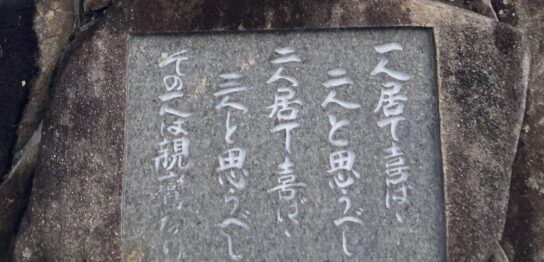 一人居て喜ばゝ
二人と思うべし
二人居て喜ばゝ
三人と思うべし
その一人は親鸞なり